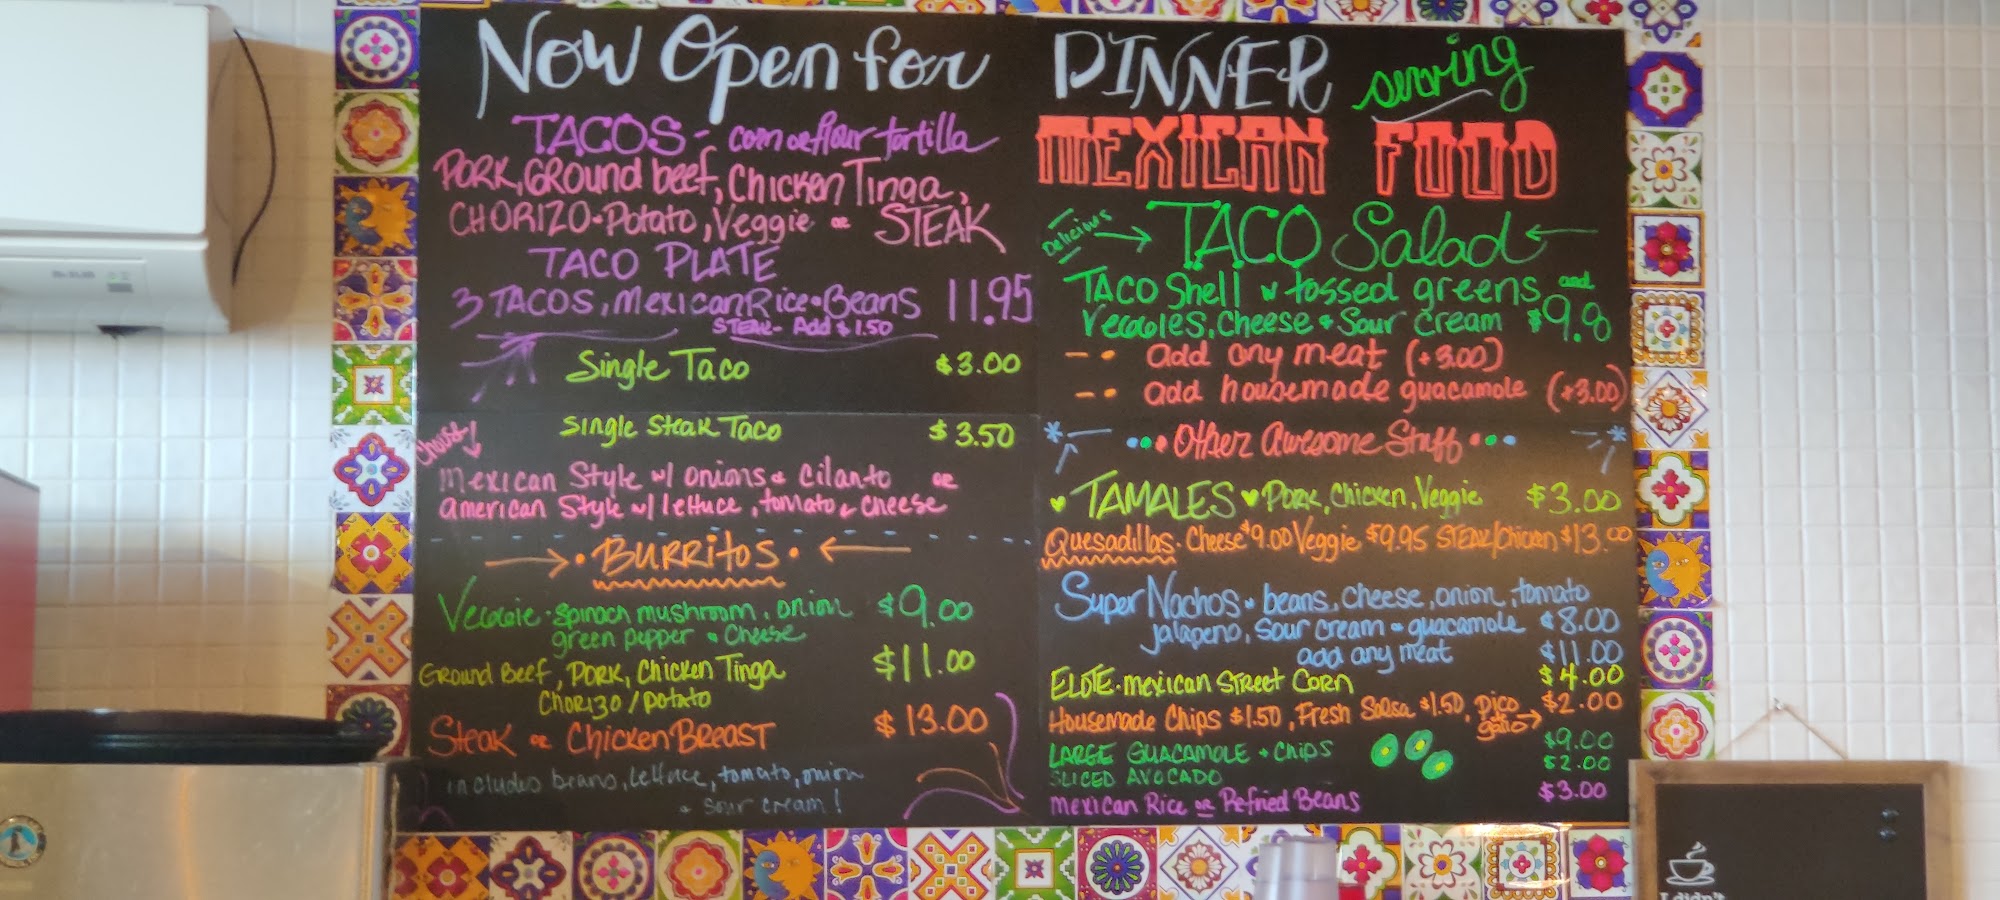 Now Open for
TACOS - corn or flour tortilla
PORK, GROUND beef, Chicken Tinga,
CHORIZO-Potato, Veggie or STEAK
TACO PLATE
3 TACOS, Mexican Rice + Beans 11.95
STEAK- Add $1.50
Single Taco $3.00
Single Steak Taco $3.50
Mexican Style w/ onions + Cilanto or
American Style w/ lettuce, tomato + cheese
• BURRITOS •
Veggie - Spinach mushroom, onion $9.00
green pepper + cheese
Ground Beef, PORK, Chicken Tinga $11.00
Chorizo/potato
Steak or Chicken BREAST $13.00
includes beans, lettuce, tomato, onion
+ sour cream!
DINNER serving
MEXICAN FOOD
Delicious TACO Salad
TACO Shell w tossed greens and
Veggies, Cheese + Sour Cream $9.
add any meat (+3.00)
add housemade guacamole (+3.00)
Other Awesome Stuff
TAMALES PORK, Chicken, Veggie $3.00
Quesadillas - Cheese $9.00 Veggie $9.95 STEAK/Chicken $13.00
Super Nachos - beans, cheese, onion, tomato
jalapeno, sour cream + guacamole $8.00
add any meat $11.00
ELOTE - mexican STREET CORN $4.00
Housemade Chips $1.50, Fresh Salsa $1.50, Pico $2.00
gallo
LARGE GUACAMOLE + CHIPS $9.00
SLICED AVOCADO $2.00
Mexican Rice or Refried Beans $3.00
I didn't